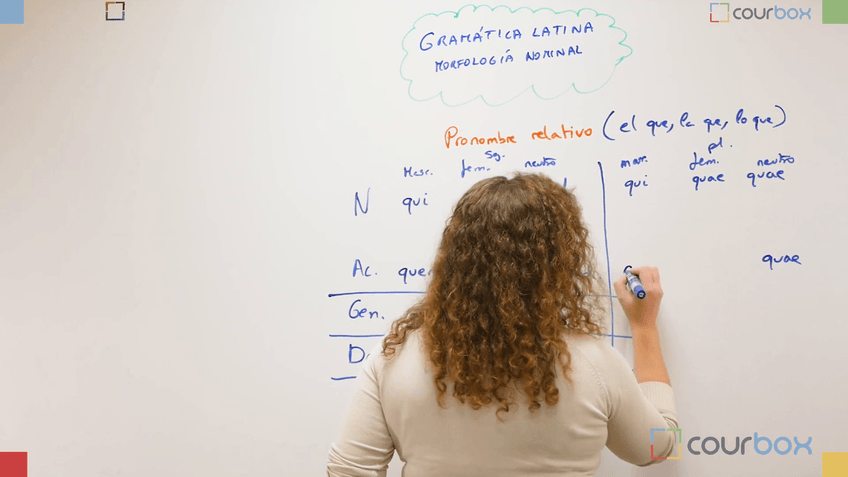 courbox
GRAMÁTICA LATINA
MORFOLOGÍA NOMINAL
Pronombre relativo (el que, la que, lo que)
Sg. pl.
Masc. fem. neutro mas. fem. neutro
N qui qui quae quae
Ac. quae
Gen.
courbox